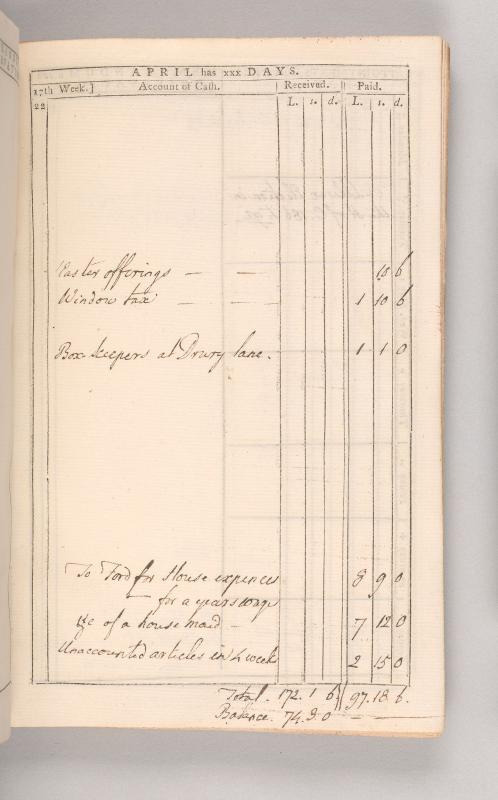 APRIL has xxx DAYS.
17th Week.] Account of Cash. Received. Paid.
22 L. s. d. L. s. d.
Easter offerings — — 10 6
Window tax — — 1 10 6
Box keepers at Drury lane. 1 1 0
To Ford for House expences 8 9 0
— for a years wage
&c of a house maid — 7 12 0
Unaccounted articles in 4 weeks 2 15 0
Total. 172. 1 6. 97. 18 6.
Balance. 74. 3 0